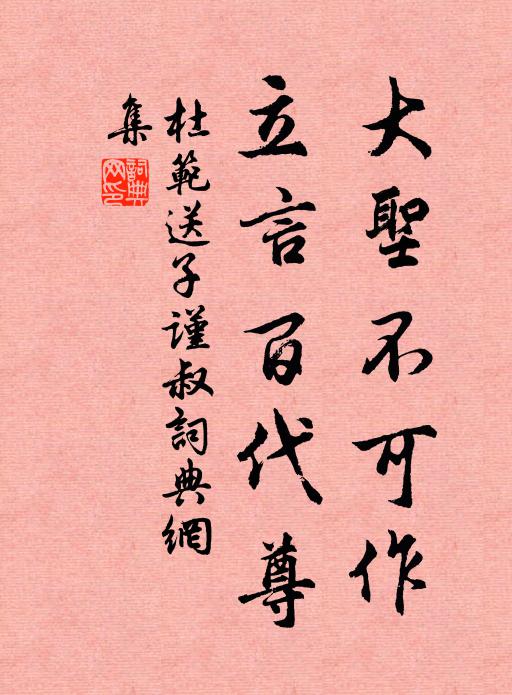 大聖不可作
立言百代尊
杜範送子謹叔詞典網
集
詞典
网印